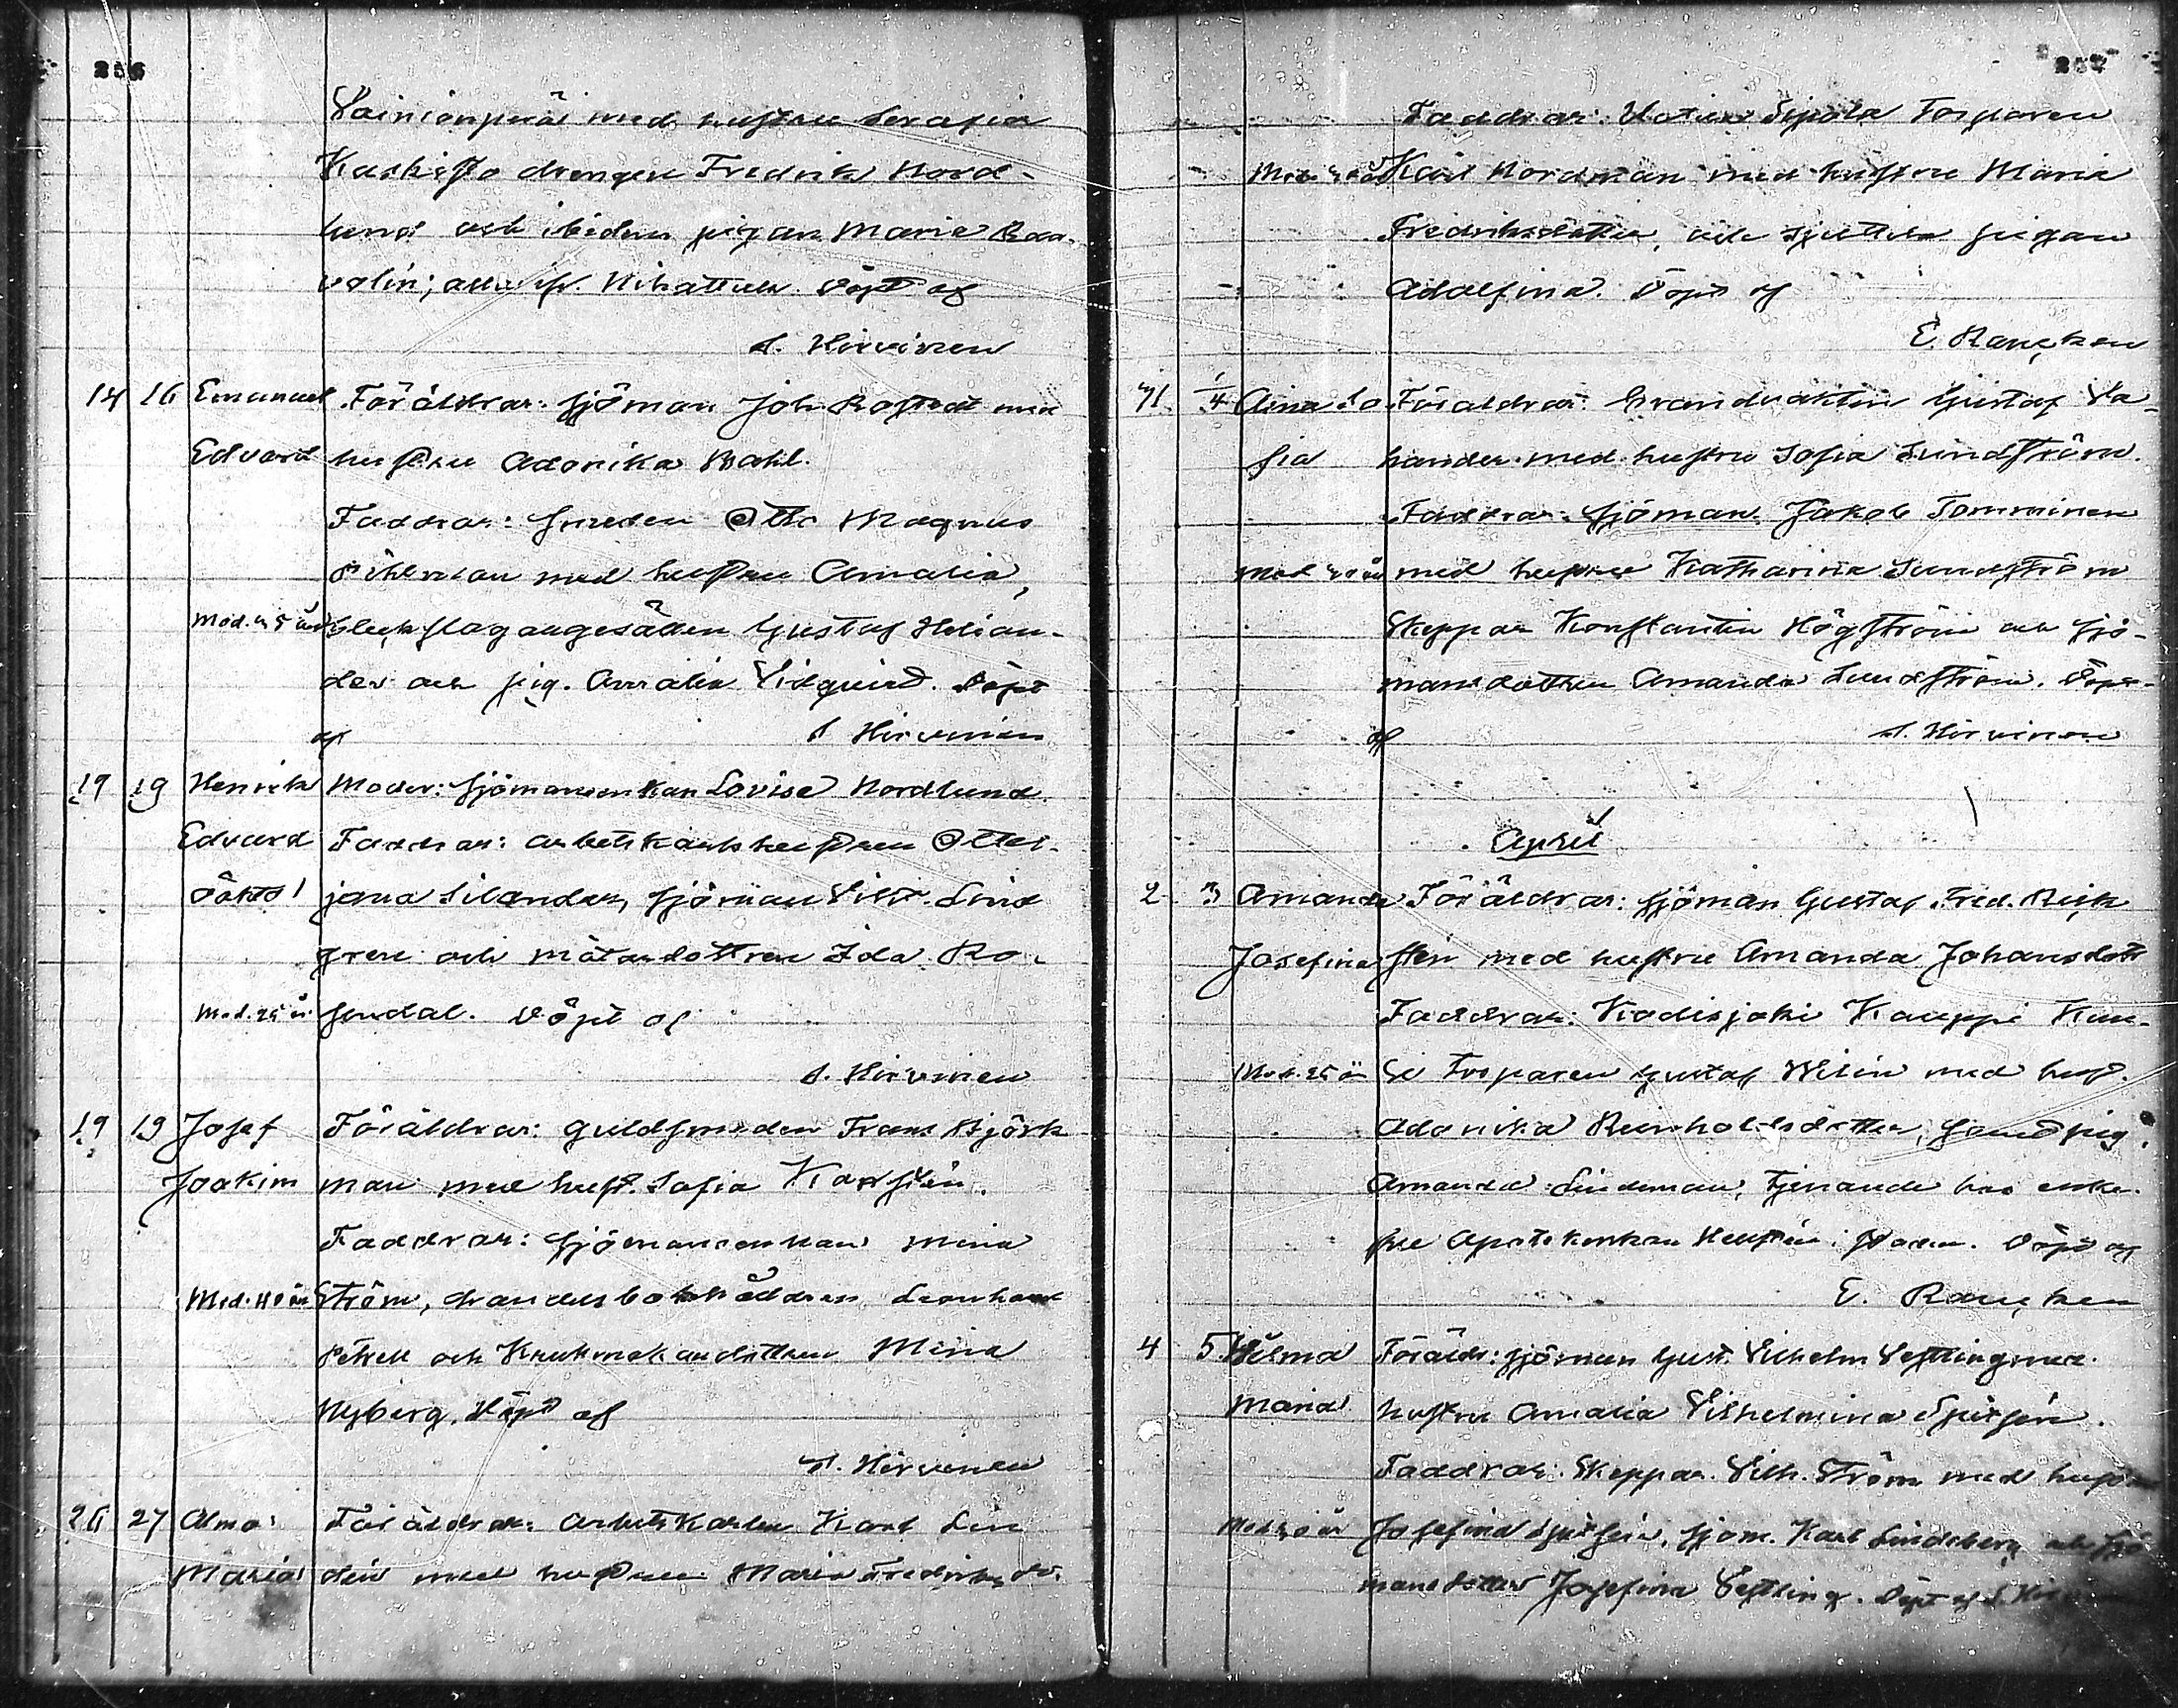 256
Vainionperä med hustru Serafia
Kaskisto drengen Fredrik Nord-
lund och ibidem pigan Maria
valin; alla fr. Nihattula. Döpt af
S. Hirvinen
14 16 Emanuel Föräldrar: Sjöman Joh. Rostedt med
Edvard hustru Adorika Dahl.
Faddrar: Smeden Otto Magnus
Pihlman med hustru Amalia,
Mod. år bleckslagaregesällen Gustaf Helian-
der och pig. Amalia Lidqvist. Döpt
af S Hirvinen
19 19 Henrik Moder: Sjömansenkan Lovisa Nordlund.
Edvard Faddrar: arbetskarlshustrun Ottel-
oäkta! jana Silander, Sjöman Vilh. Lind
gren och mätaredottren Ida Ro-
Mod. 25 år sendal. Döpt af
S. Hirvinen
19 19 Josef Föräldrar: guldsmeden Frans Björk
Joakim man med hust. Sofia Karstén.
Faddrar: Sjömansenkan Mina
Mod. 40 år Ström, handelsbokhållaren Leonhard
Petrell och Krukmakaredottren Mina
Nyberg. Döpt af
S. Hirvinen
26 27 Alma Föräldrar: Arbetskarlen Karl Lin
Maria dén med hustru Maria Fredriksd:r
257
Faddrar: Sipola Torparen
Karl Nordman med hustru Maria
Fredriksdotter, och pigan
Adolfina. Döpt af
E. Rancken
31 1/4 Aina So Föräldrar: Brandvakten Gustaf Sa-
fia lander med hustru Sofia Lundström.
Faddrar: Sjöman Jakob Tomminen
Mod år med hustru Katharina Lundström
Skeppar Konstantin Högström och Sjö-
mansdottren Amanda Lundström. Döpt
af S. Hirvinen
April
2 3 Amanda Föräldrar: Sjöman Gustaf Fred. Rick
Josefina sten med hustru Amanda Johansdotr
Faddrar: Kodisjoki Kauppi
Mod. 25 år Torparen Gustaf Welin med hust.
Adorika Reinholdsdotter, samt pig.
Amanda Lindeman, tjenande hos enke-
fru Apotekerskan i staden. Döpt af
E. Rancken
4 5 Vilma Föräldr: Sjöman Gust. Vilhelm Vestling med
Maria hustru Amalia Vilhelmina Sjursén.
Faddrar: Skeppar. Vilh. Ström med hust
Mod år Josefina Sjursén, Sjöm. Karl Lindeberg och Sjö
mansdotter Josefina Vestling. Döpt af S.